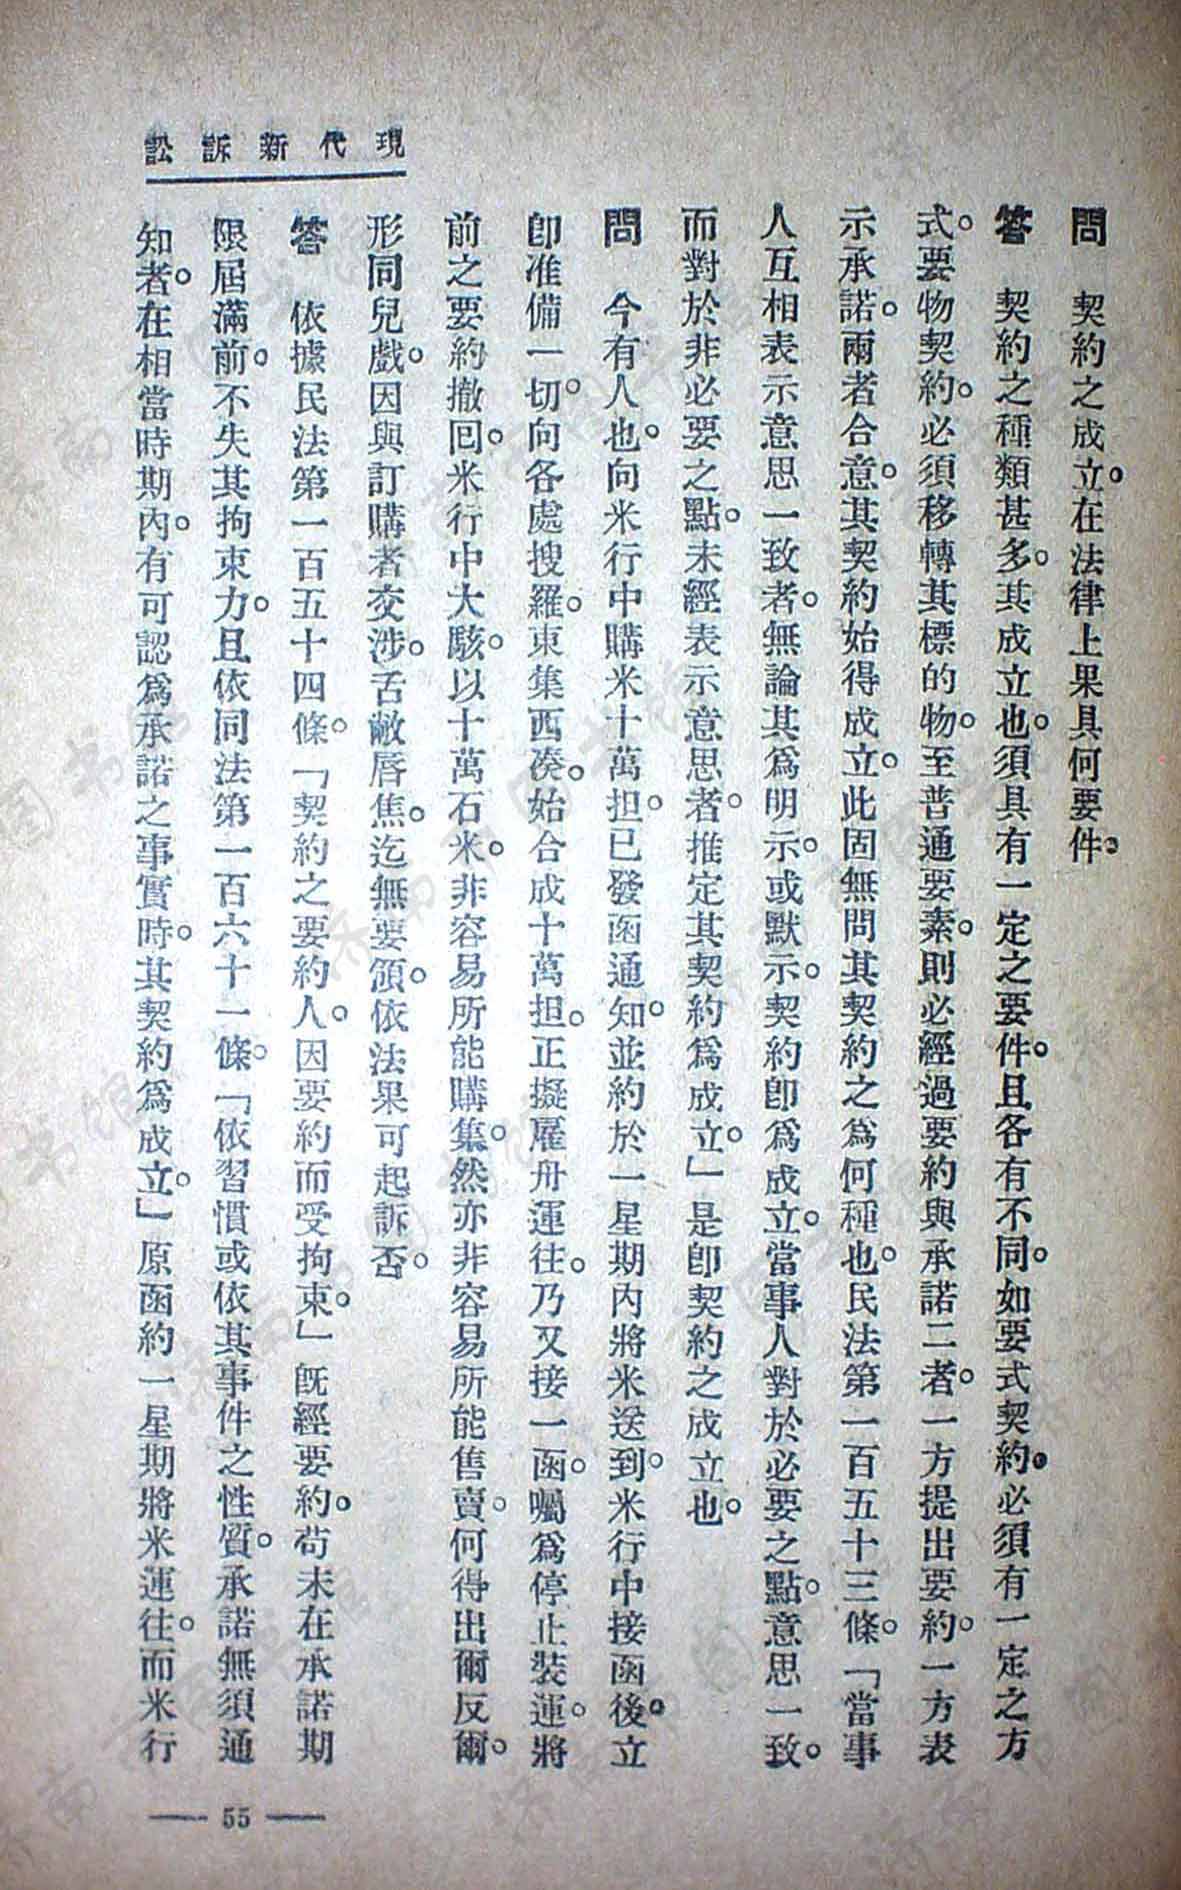 現代新訴訟
問　契約之成立。在法律上果具何要件。
答　契約之種類甚多。其成立也。須具有一定之要件。且各有不同。如要式契約。必須有一定之方
式。要物契約。必須移轉其標的物。至普通要素。則必經過要約與承諾二者。一方提出要約。一方表
示承諾。兩者合意。其契約始得成立。此固無問其契約之爲何種也。民法第一百五十三條。「當事
人互相表示意思一致者。無論其爲明示。或默示。契約卽爲成立。當事人對於必要之點。意思一致。
而對於非必要之點。未經表示意思者。推定其契約爲成立。」是卽契約之成立也。
問　今有人也。向米行中購米十萬担。已發函通知。並約於一星期內將米送到。米行中接函後。立
卽准備一切。向各處搜羅。東集西湊。始合成十萬担。正擬雇舟運往。乃又接一函。囑爲停止裝運。將
前之要約撤回。米行中大駭。以十萬石米。非容易所能購集。然亦非容易所能售賣。何得出爾反爾。
形同兒戲。因與訂購者交涉。舌敝唇焦。迄無要領。依法果可起訴否。
答　依據民法第一百五十四條。「契約之要約人。因要約而受拘束。」旣經要約。苟未在承諾期
限屆滿前。不失其拘束力。且依同法第一百六十一條。「依習慣或依其事件之性質。承諾無須通
知者。在相當時期內。有可認爲承諾之事實時。其契約爲成立。」原函約一星期將米運往。而米行
55